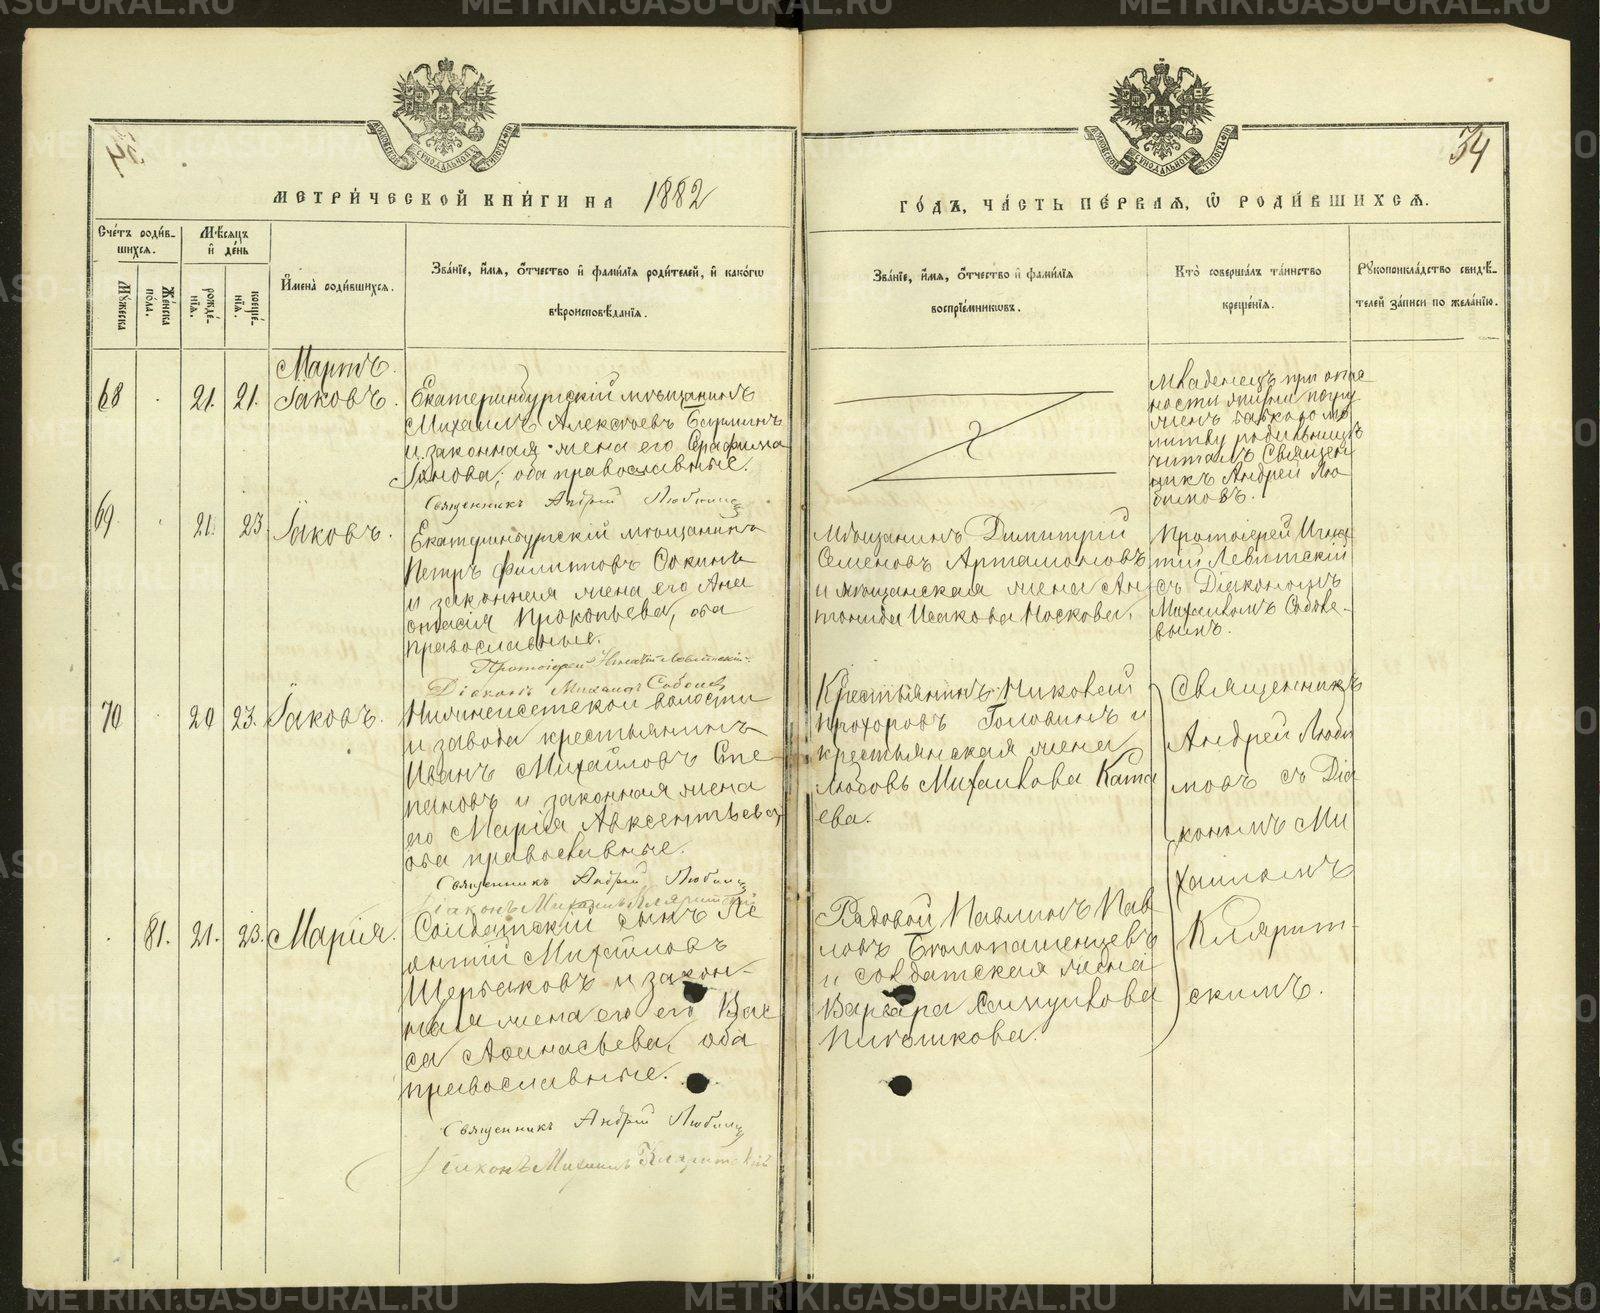 34
34
МЕТРИ́ЧЕСКОЙ КНИ́ГИ НА 1882
ГО́ДЪ, ЧА́СТЬ ПЕ́РВАѦ, Ѡ РОДИ́ВШИХСѦ.
Сче́тъ роди́в-
шихсѧ.
Мꙋжеска
Же́нска
по́ла.
Мѣ́сѧцъ
и де́нь
рожде́-
нїѧ.
креще́-
нїѧ.
Имена̀ роди́вшихсѧ.
Зва́нїе, и́мѧ, о́тчество и фами́лїѧ роди́телей, и како́гѡ
вѣроисповѣ́данїѧ.
Зва́нїе, и́мѧ, о́тчество и фами́лїѧ
воспрїе́мникѡвъ.
Кто̀ соверша́лъ та́инство
креще́нїѧ.
Рꙋкоприкла́дство свидѣ́-
телей за́писи по жела́нїю.
Мартъ.
68 21. 21. Іаковъ.
Екатеринбургскій мѣщанинъ
Михаилъ Алексѣевъ
и законная жена его Серафима
Іанова, оба православные.
Священникъ Андрей Любимовъ
Младенецъ при опас
ности жизни погру
женъ бабкою мо
литву родильницѣ
читалъ Священ
никъ Андрей Лю
бимовъ.
69 21. 23. Іаковъ.
Екатеринбургскій мѣщанинъ
Петръ Филипповъ Сокинъ
и законная жена его Ана
стасія Прокопьева, оба
православные.
Протоіерей Игнатій Левитскій.
Діаконъ Михаилъ Соболевъ
Мѣщанинъ Димитрій
Семеновъ Артамоновъ
и мѣщанская жена Ан
тонида Исакова Носкова.
Протоіерей Игна
тій Левитскій
съ Діакономъ
Михаиломъ Соболе-
вымъ.
70 20 23. Іаковъ.
Нижнеисетской волости
и завода крестьянинъ
Иванъ Михайловъ Сте
пановъ и законная жена
его Марія Авксентьева,
оба православные.
Священникъ Андрей Любимовъ
Діаконъ Михаилъ Кляритскій
Крестьянинъ Николай
Прохоровъ Головинъ и
крестьянская жена
Любовь Михаилова Ката
ева.
Священникъ
Андрей Люби
мовъ съ Діа
кономъ Ми
хаиломъ
Клярит-
скимъ.
81. 21. 23. Марія.
Солдатскій сынъ Ле
онтій Михайловъ
Щербаковъ и закон-
ная жена его его Вас
са Аѳанасьева, оба
православные.
Священникъ Андрей Любимовъ
Діаконъ Михаилъ Кляритскій
Рядовой Павлинъ Пав
ловъ Бѣлопашенцевъ
и солдатская жена
Варвара Самуилова
Пильникова.